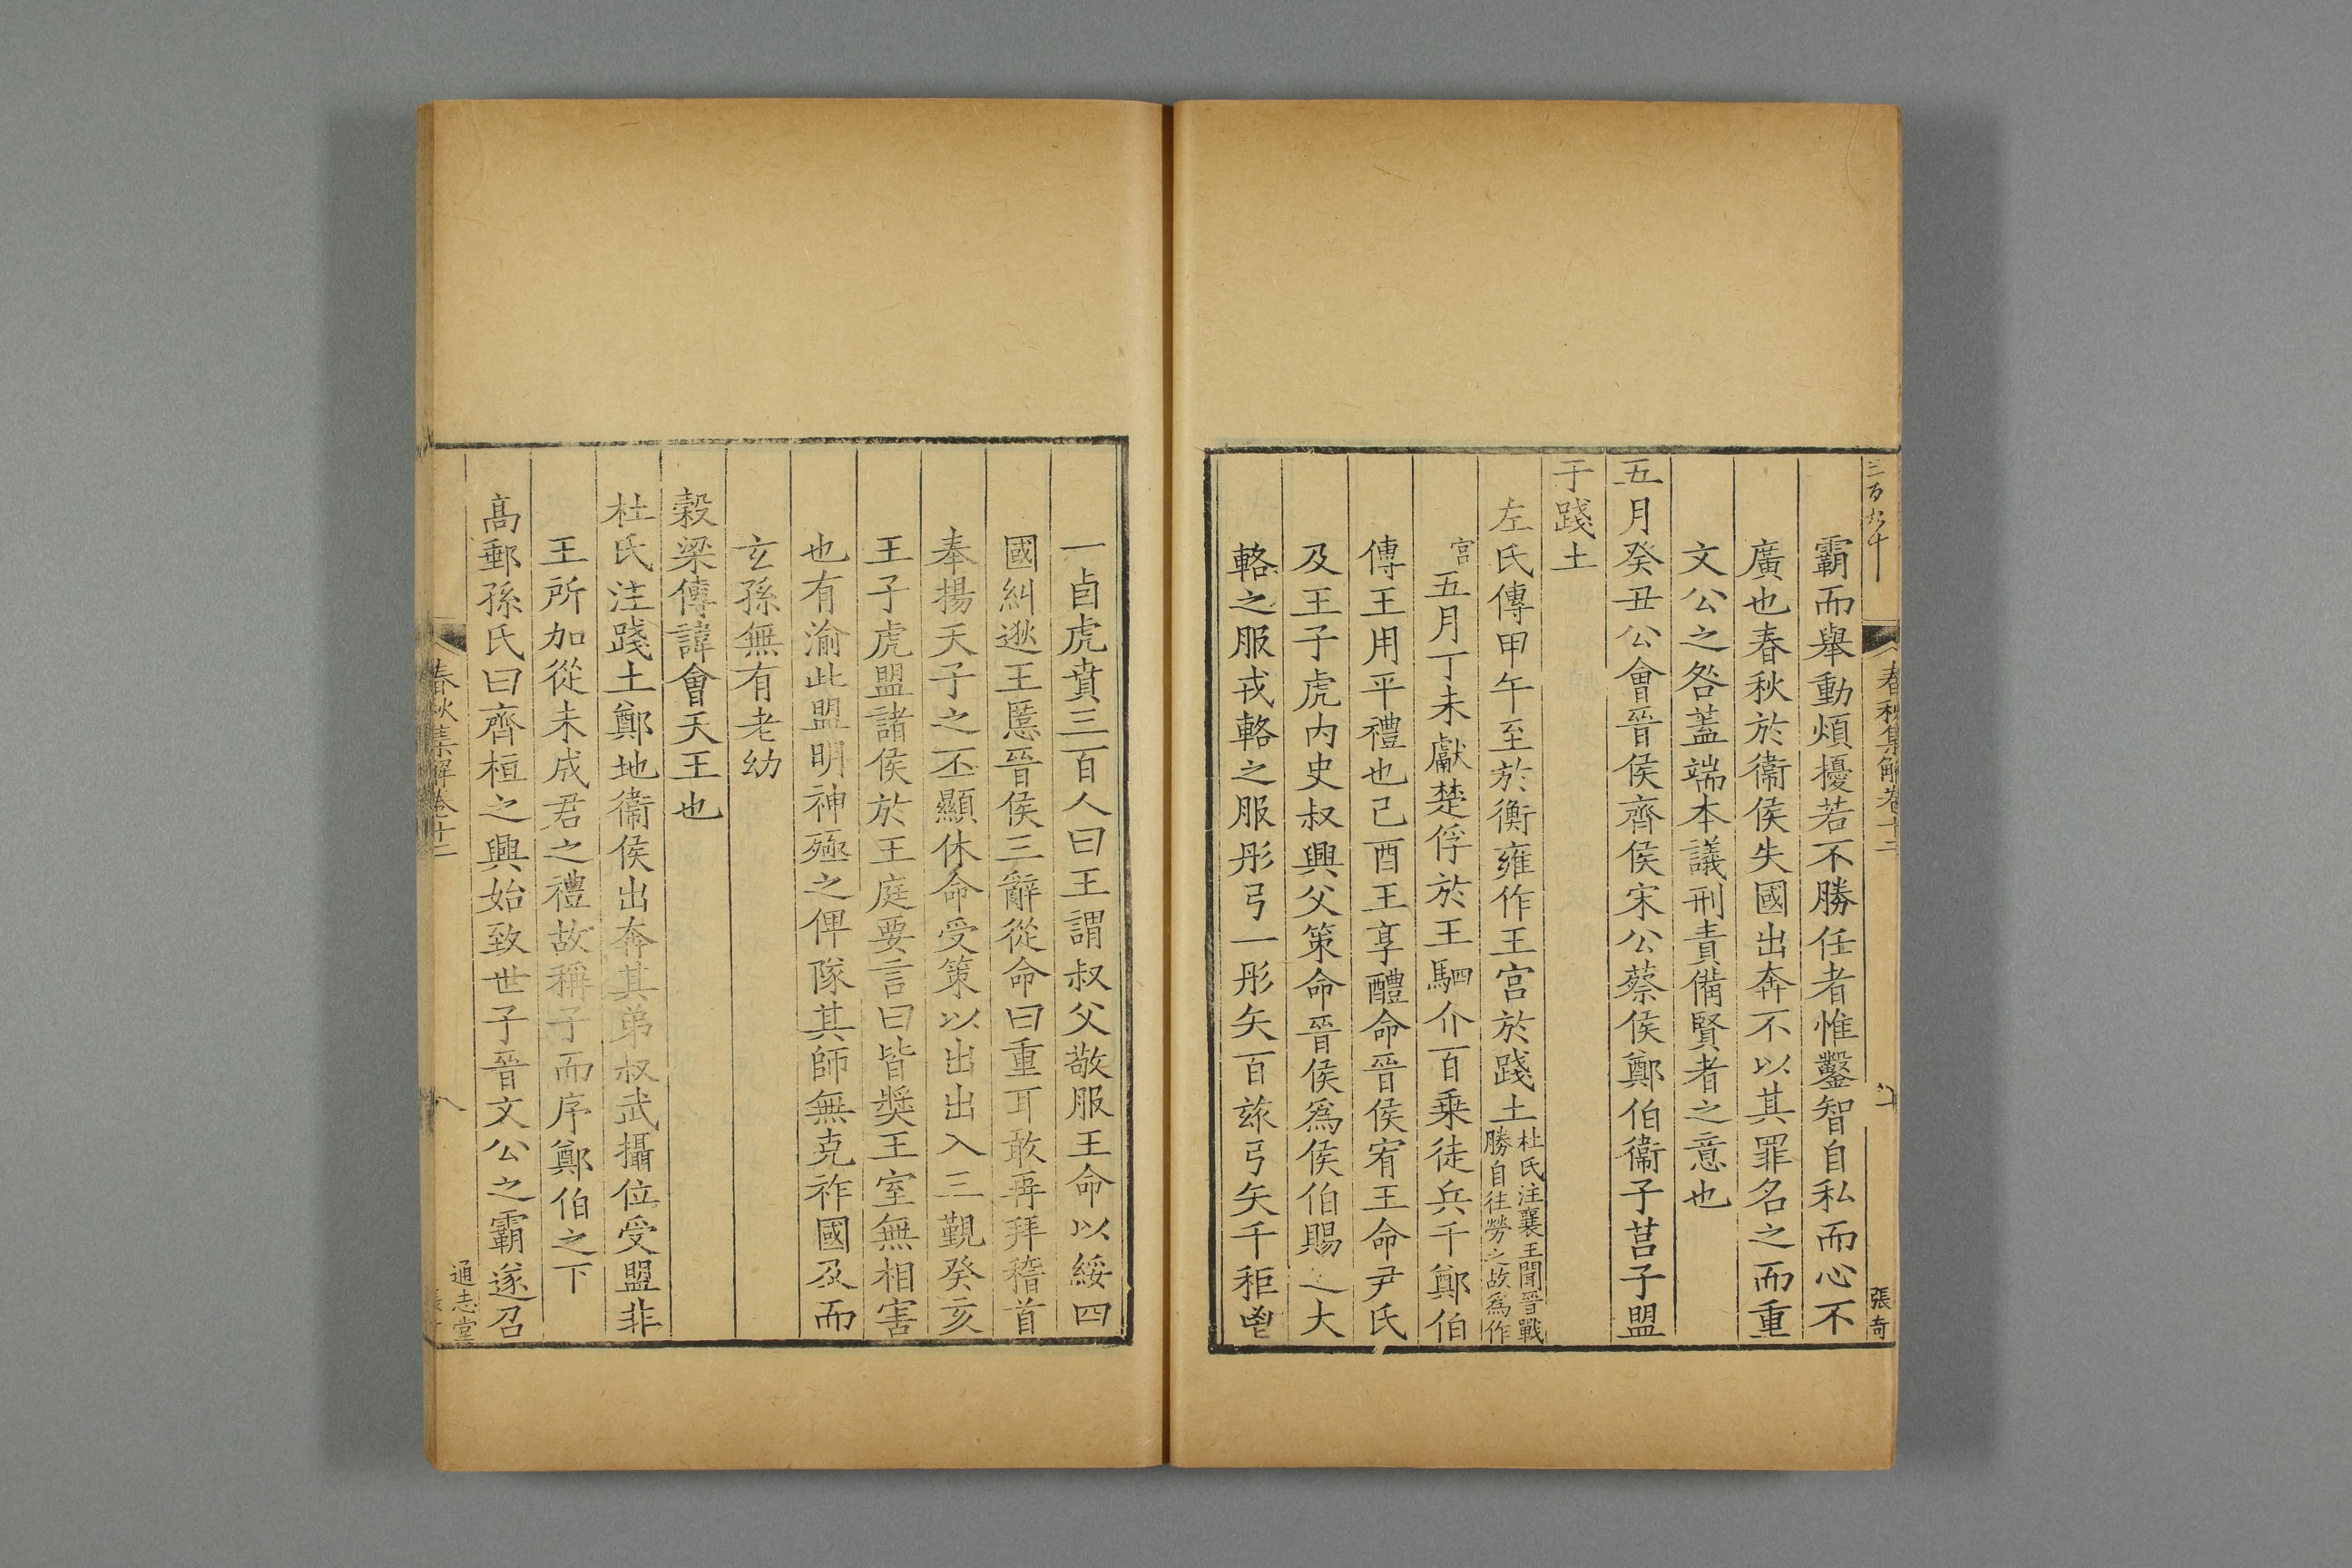 三百九十
春秋集解卷十二
張奇
霸而舉動煩擾若不勝任者惟鑿智自私而心不
廣也春秋於衞侯失國出奔不以其罪名之而重
文公之咎蓋端本議刑責備賢者之意也
五月癸丑公會晉侯齊侯宋公蔡侯鄭伯衞子莒子盟
于踐土
左氏傳甲午至於衡雍作王宮於踐土杜氏注襄王聞晉戰
勝自往勞之故爲作
宮五月丁未獻楚俘於王駟介百乗徒兵千鄭伯
傳王用平禮也己酉王享醴命晉侯宥王命尹氏
及王子虎内史叔興父策命晉侯爲侯伯賜之大
輅之服戎輅之服彤弓一彤矢百玈弓矢千秬鬯
一卣虎賁三百人曰王謂叔父敬服王命以綏四
國糾逖王慝晉侯三辭從命曰重耳敢再拜稽首
奉揚天子之丕顯休命受策以出出入三覲癸亥
王子虎盟諸侯於王庭要言曰皆奬王室無相害
也有渝此盟明神殛之俾隊其師無克祚國及而
玄孫無有老幼
穀梁傳諱會天王也
杜氏注踐土鄭地衞侯出奔其弟叔武攝位受盟非
王所加從未成君之禮故稱子而序鄭伯之下
高郵孫氏曰齊桓之興始致世子晉文公之霸遂召
春秋集解卷十二
八
通志堂